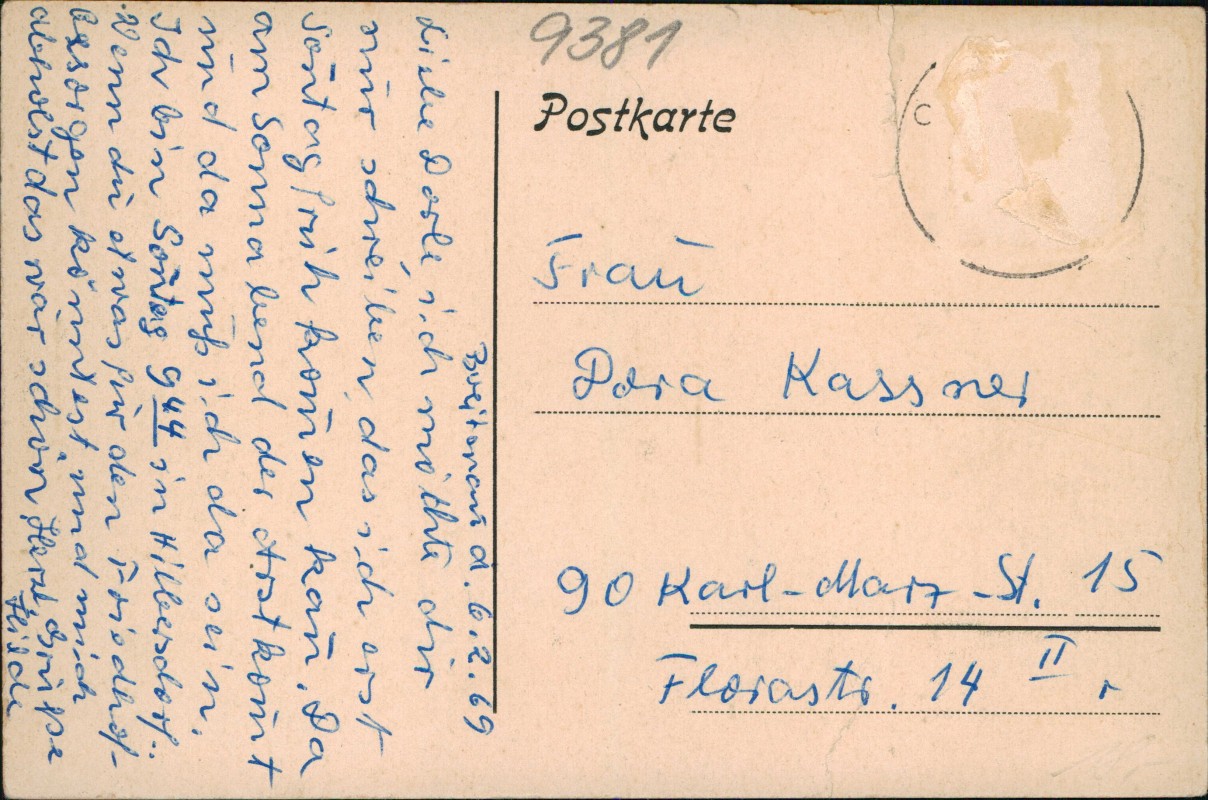 9381
Postkarte
C
Frau
Dora Kassner
90 Karl-Marx-St. 15
Florastr. 14 II r
Breitenau d. 6.2.69
Liebe Dorle ich möthte dir
nur schreiben, das ich erst
Soñtag früh komen kañ. Da
am Sonnabend der Arst komt
und da muß ich da sein.
Ich bin Soñtag 9 44 in Hilbersdorf.
Wenn du etwas für den Friedhof
besorgen köntest, und mich
abholst das wär schön Herzl. Grüße